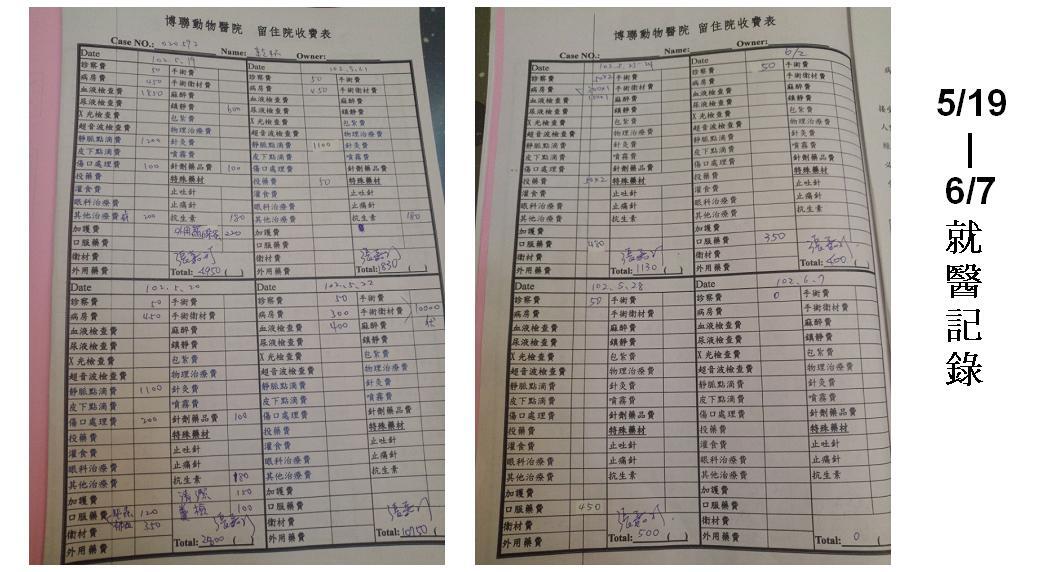 博聯動物醫院 留住院收費表
Case NO.: 020592 Name: Owner:
Date 102.5.19 Date 102.5.21
診察費 50 手術費 診察費 50 手術費
病房費 450 手術衛材費 病房費 450 手術衛材費
血液檢查費 1850 麻醉費 血液檢查費 麻醉費
尿液檢查費 鎮靜費 600 尿液檢查費 鎮靜費
X光檢查費 包紮費 X光檢查費 包紮費
超音波檢查費 物理治療費 超音波檢查費 物理治療費
靜脈點滴費 1200 針灸費 靜脈點滴費 1100 針灸費
皮下點滴費 噴霧費 皮下點滴費 噴霧費
傷口處理費 100 針劑藥品費 100 傷口處理費 針劑藥品費
投藥費 特殊藥材 投藥費 50 特殊藥材
灌食費 止吐針 灌食費 止吐針
眼科治療費 止痛針 眼科治療費 止痛針
其他治療費 200 抗生素 180 其他治療費 抗生素 180
加護費 220 加護費
口服藥費 口服藥費
衛材費 衛材費
外用藥費 Total: 4950 ( ) 外用藥費 Total: 1830 ( )
Date 102.5.20 Date 102.5.22
診察費 50 手術費 診察費 50 手術費
病房費 450 手術衛材費 病房費 300 手術衛材費 10000
血液檢查費 麻醉費 血液檢查費 400 麻醉費
尿液檢查費 鎮靜費 尿液檢查費 鎮靜費
X光檢查費 包紮費 X光檢查費 包紮費
超音波檢查費 物理治療費 超音波檢查費 物理治療費
靜脈點滴費 1100 針灸費 靜脈點滴費 針灸費
皮下點滴費 噴霧費 皮下點滴費 噴霧費
傷口處理費 200 針劑藥品費 100 傷口處理費 針劑藥品費
投藥費 特殊藥材 投藥費 特殊藥材
灌食費 止吐針 灌食費 止吐針
眼科治療費 止痛針 眼科治療費 止痛針
其他治療費 抗生素 180 其他治療費 抗生素
加護費 150 加護費
口服藥費 120 100 口服藥費
衛材費 350 衛材費
外用藥費 Total: ( ) 外用藥費 Total: 10750 ( )
博聯動物醫院 留住院收費表
Case NO.: Name: Owner:
Date 102.5.23-24 Date 6/2
診察費 50×2 手術費 診察費 50 手術費
病房費 手術衛材費 病房費 手術衛材費
血液檢查費 麻醉費 血液檢查費 麻醉費
尿液檢查費 鎮靜費 尿液檢查費 鎮靜費
X光檢查費 包紮費 X光檢查費 包紮費
超音波檢查費 物理治療費 超音波檢查費 物理治療費
靜脈點滴費 針灸費 靜脈點滴費 針灸費
皮下點滴費 噴霧費 皮下點滴費 噴霧費
傷口處理費 針劑藥品費 傷口處理費 針劑藥品費
投藥費 50×2 特殊藥材 投藥費 特殊藥材
灌食費 止吐針 灌食費 止吐針
眼科治療費 止痛針 眼科治療費 止痛針
其他治療費 抗生素 其他治療費 抗生素
加護費 加護費
口服藥費 480 口服藥費 350
衛材費 衛材費
外用藥費 Total: 1130 ( ) 外用藥費 Total: 400 ( )
Date 102.5.28 Date 102.6.7
診察費 50 手術費 診察費 0 手術費
病房費 手術衛材費 病房費 手術衛材費
血液檢查費 麻醉費 血液檢查費 麻醉費
尿液檢查費 鎮靜費 尿液檢查費 鎮靜費
X光檢查費 包紮費 X光檢查費 包紮費
超音波檢查費 物理治療費 超音波檢查費 物理治療費
靜脈點滴費 針灸費 靜脈點滴費 針灸費
皮下點滴費 噴霧費 皮下點滴費 噴霧費
傷口處理費 針劑藥品費 傷口處理費 針劑藥品費
投藥費 特殊藥材 投藥費 特殊藥材
灌食費 止吐針 灌食費 止吐針
眼科治療費 止痛針 眼科治療費 止痛針
其他治療費 抗生素 其他治療費 抗生素
加護費 加護費
口服藥費 450 口服藥費
衛材費 衛材費
外用藥費 Total: 500 ( ) 外用藥費 Total: 0 ( )
5/19
|
6/7
就
醫
記
錄